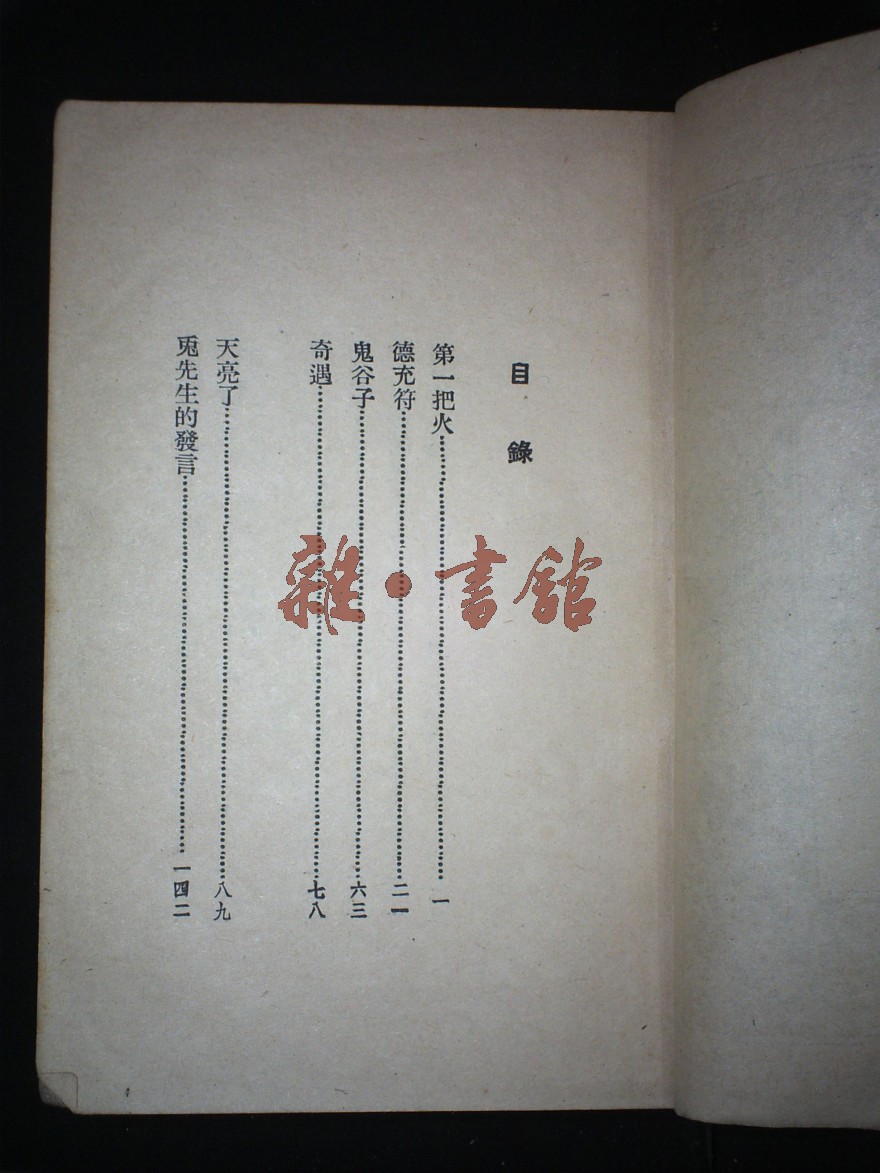 目錄
第一把火……一
德充符……二一
鬼谷子……六三
奇遇……七八
天亮了……八九
兎先生的發言……一四二
雜·書館